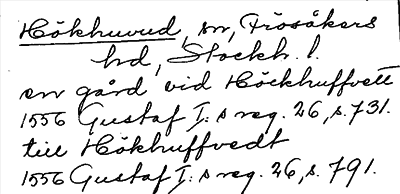 Hökhuvud, sn, Frösåkers
hd, Stockh. l.
en gård vid Höckhuffvett
1556 Gustaf I:s reg. 26, s. 731.
till Hökhuffvedt
1556 Gustaf I:s reg. 26, s. 791.